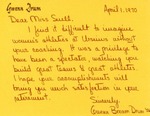 Gwenn Brown
April 1, 1970
Dear Miss Snell,
I find it difficult to imagine
women's athletics at Ursinus without
your coaching. It was a privilege to
have been a spectator, watching you
build great teams & great athletes.
I hope your accomplishments will
bring you much satisfaction in your
retirement.
Sincerely,